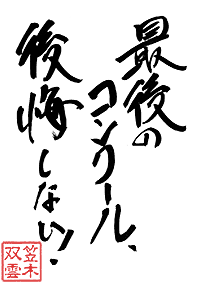 最後の
コンクール、
後悔しない!
笠木
双雲